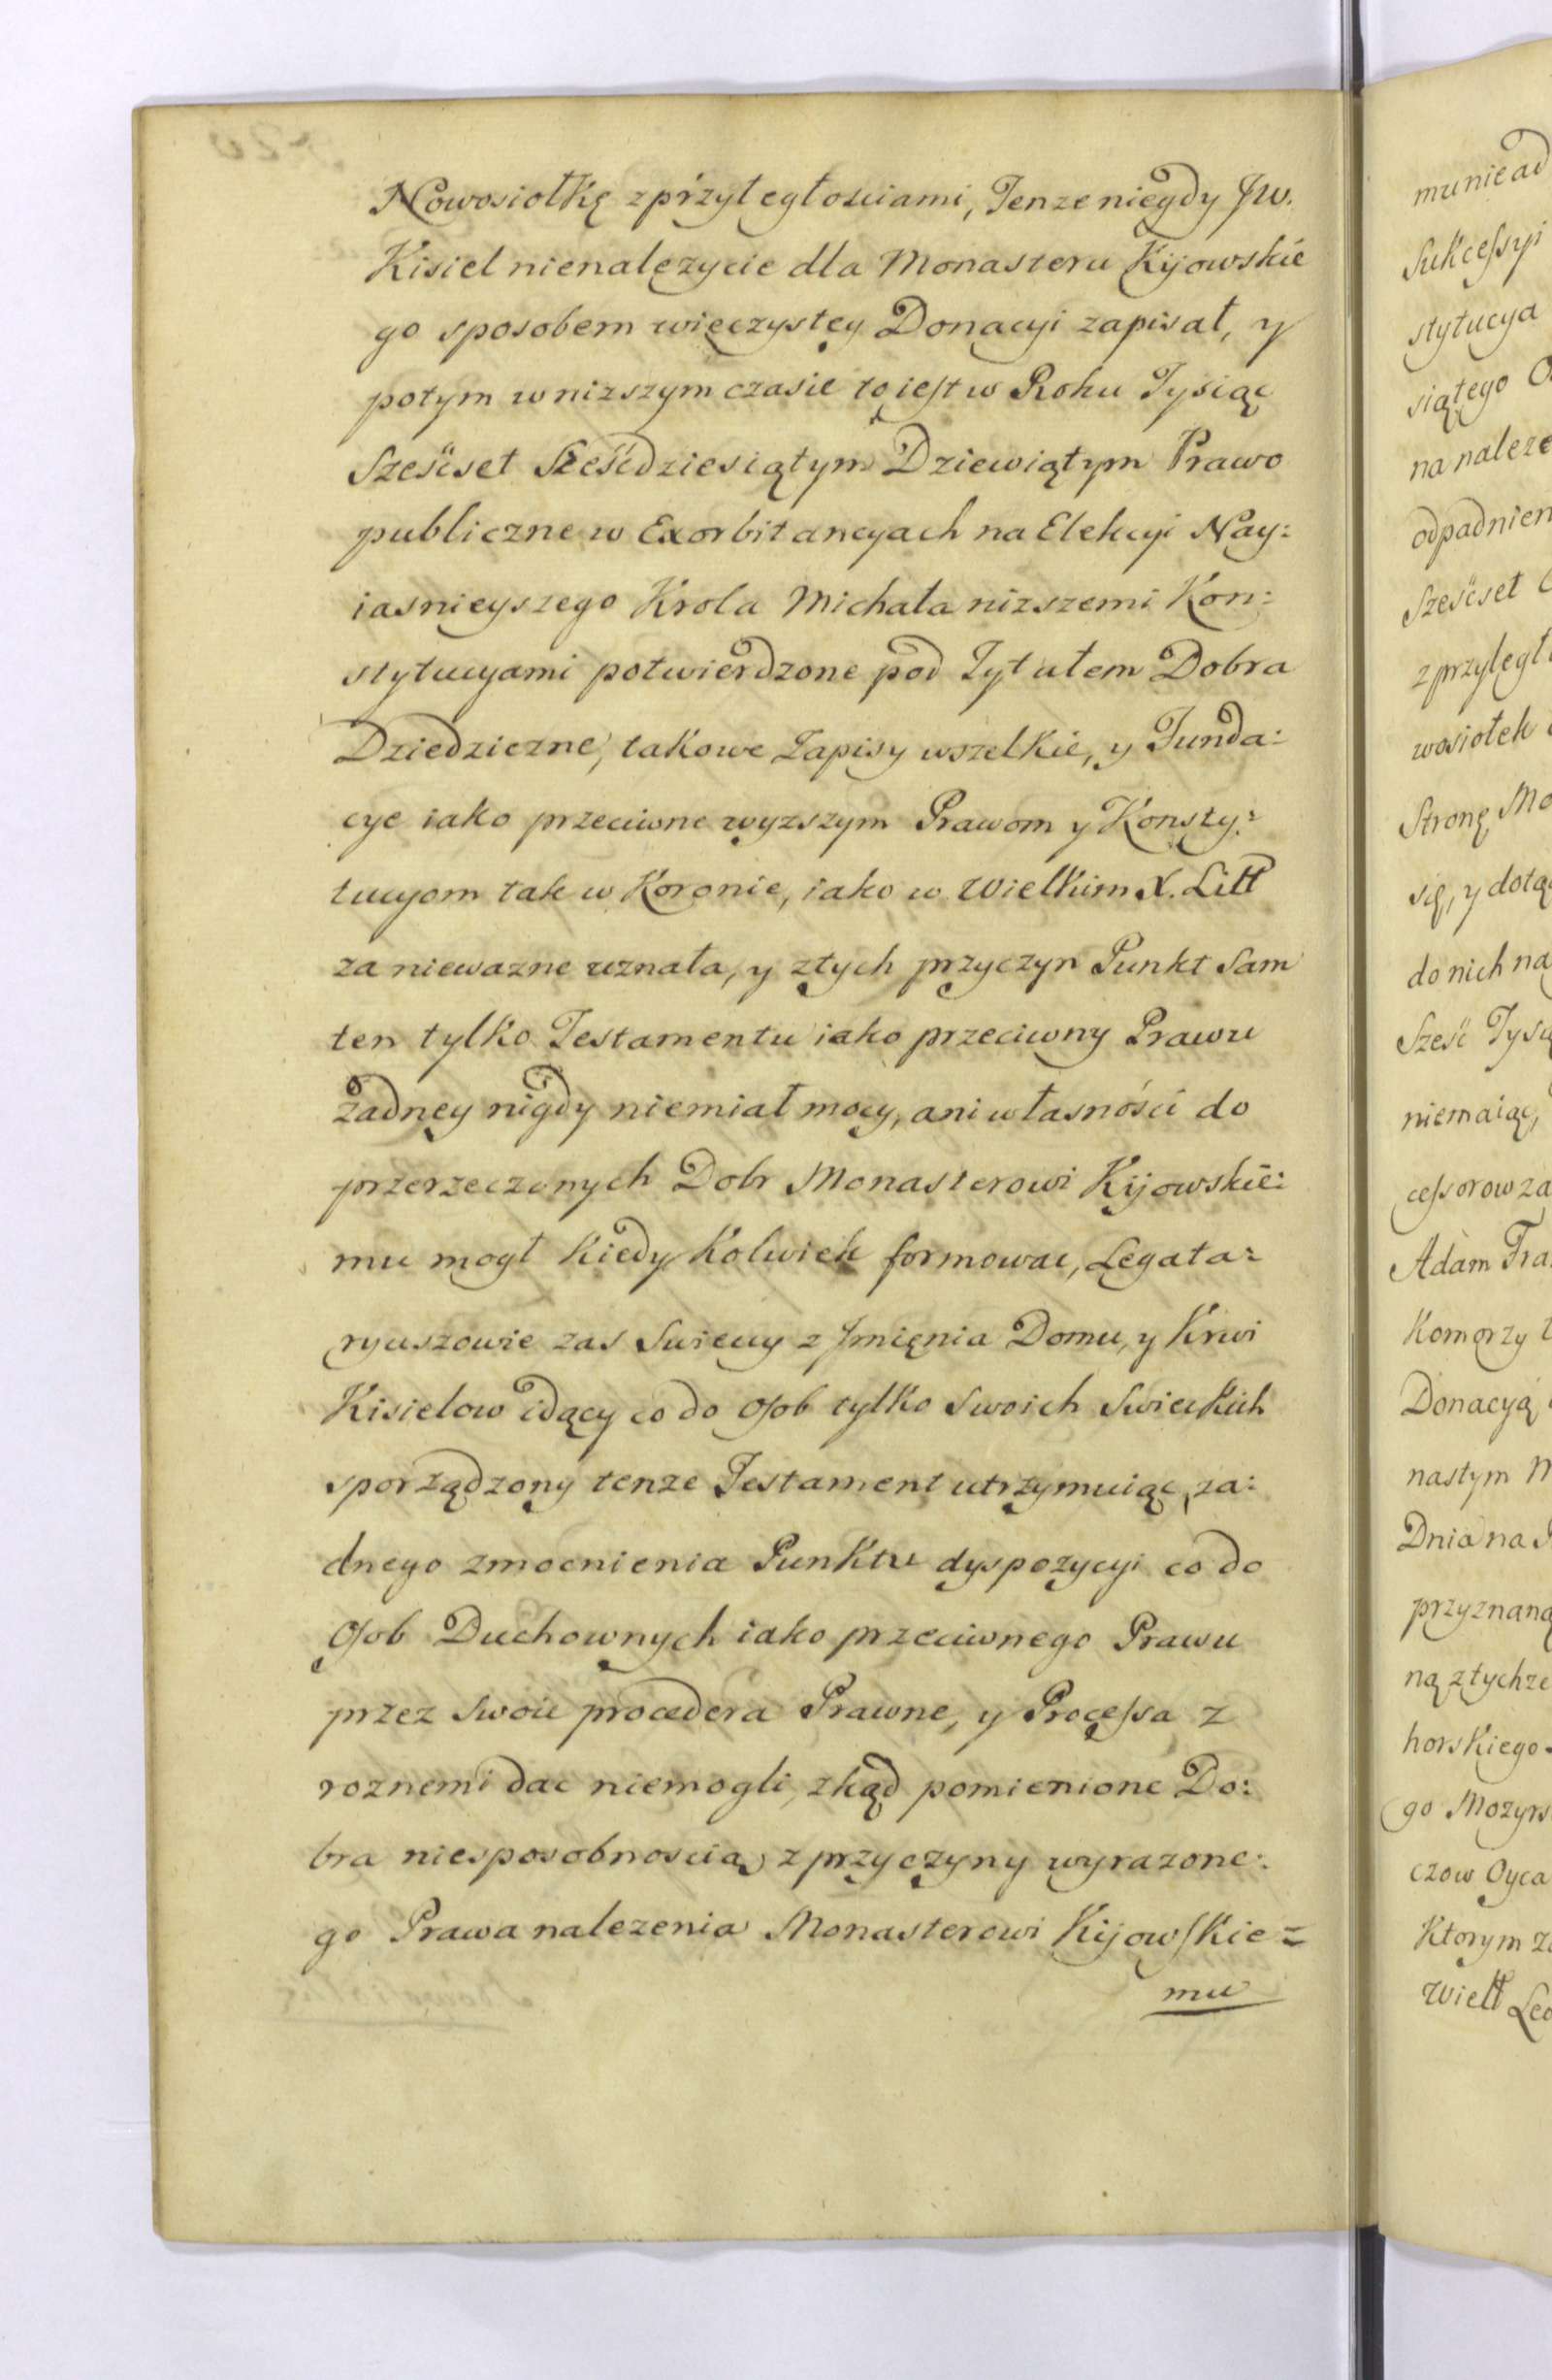 Nowosiołkę z przyległosciami, Tenze niegdy Jw.
Kisiel nienalezycie dla Monasteru Kijowskie
go sposobem wieczystey Donacyi zapisał, y
potym w nizszym czasie to iest w Roku Tysiąc
Sześcset Sześcdziesiątym Dziewiątym Prawo
publiczne w Exorbitancyach na Elekcyi Nay:
iasnieyszego Krola Michała nizszemi Kon:
stytucyami potwierdzone pod Tytułem Dobra
Dziedziczne, takowe Zapisy wszelkie, y Funda:
cye iako przeciwne wyzszym Prawom y Konsty:
tucyom tak w Koronie, iako w Wielkim X. Litt
za niewazne uznała, y z tych przyczyn Punkt Sam
ten tylko Testamentu iako przeciwny Prawu
żadney nigdy niemiał mocy, ani własności do
przerzeczonych Dobr Monasterowi Kijowskie:
mu mogł Kiedy Kolwiek formowac, Legata:
ryuszowie zas Swieccy z Jmięnia Domu, y Krwi
Kisielow idący co do Osob tylko Swoich Swieckich
sporządzony tenze Testament utrzymuiąc, za:
dnego zmocnienia Punktu dyspozycyi co do
Osob Duchownych iako przeciwnego Prawu
przez Swoie procedera Prawne, y Processa z
roznemi dac niemogli, zkąd pomienione Do:
bra niesposobnoscią z przyczyny wyrazone:
go Prawa nalezenia Monasterowi Kijowskie=
mu
mu nie ad
Sukcessyi
stytucya
siątego
na naleze
odpadnien
Sześcset
z przyległ
wosiołek
Stronę Mo
się, y dotąd
do nich na
Sześć Tysią
niemaiąc,
cessorow za
Adam Fra
Komorzy
Donacyą
nastym M
Dnia na
przyznaną
ną z tychze
horskiego
go Mozyrs
czow Oyca
Ktorym
Wiell Leo